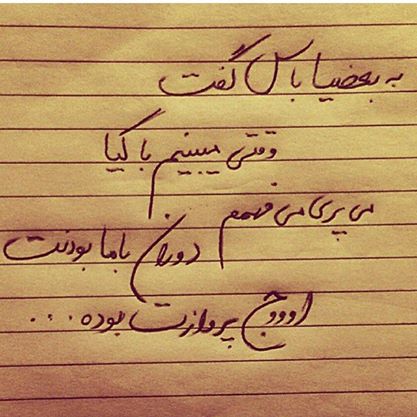 به بعضیا باس گفت
وقتی میبینم با کیا
می پری می فهمم
دوران با ما بودنت
اوووج پروازت بوده...